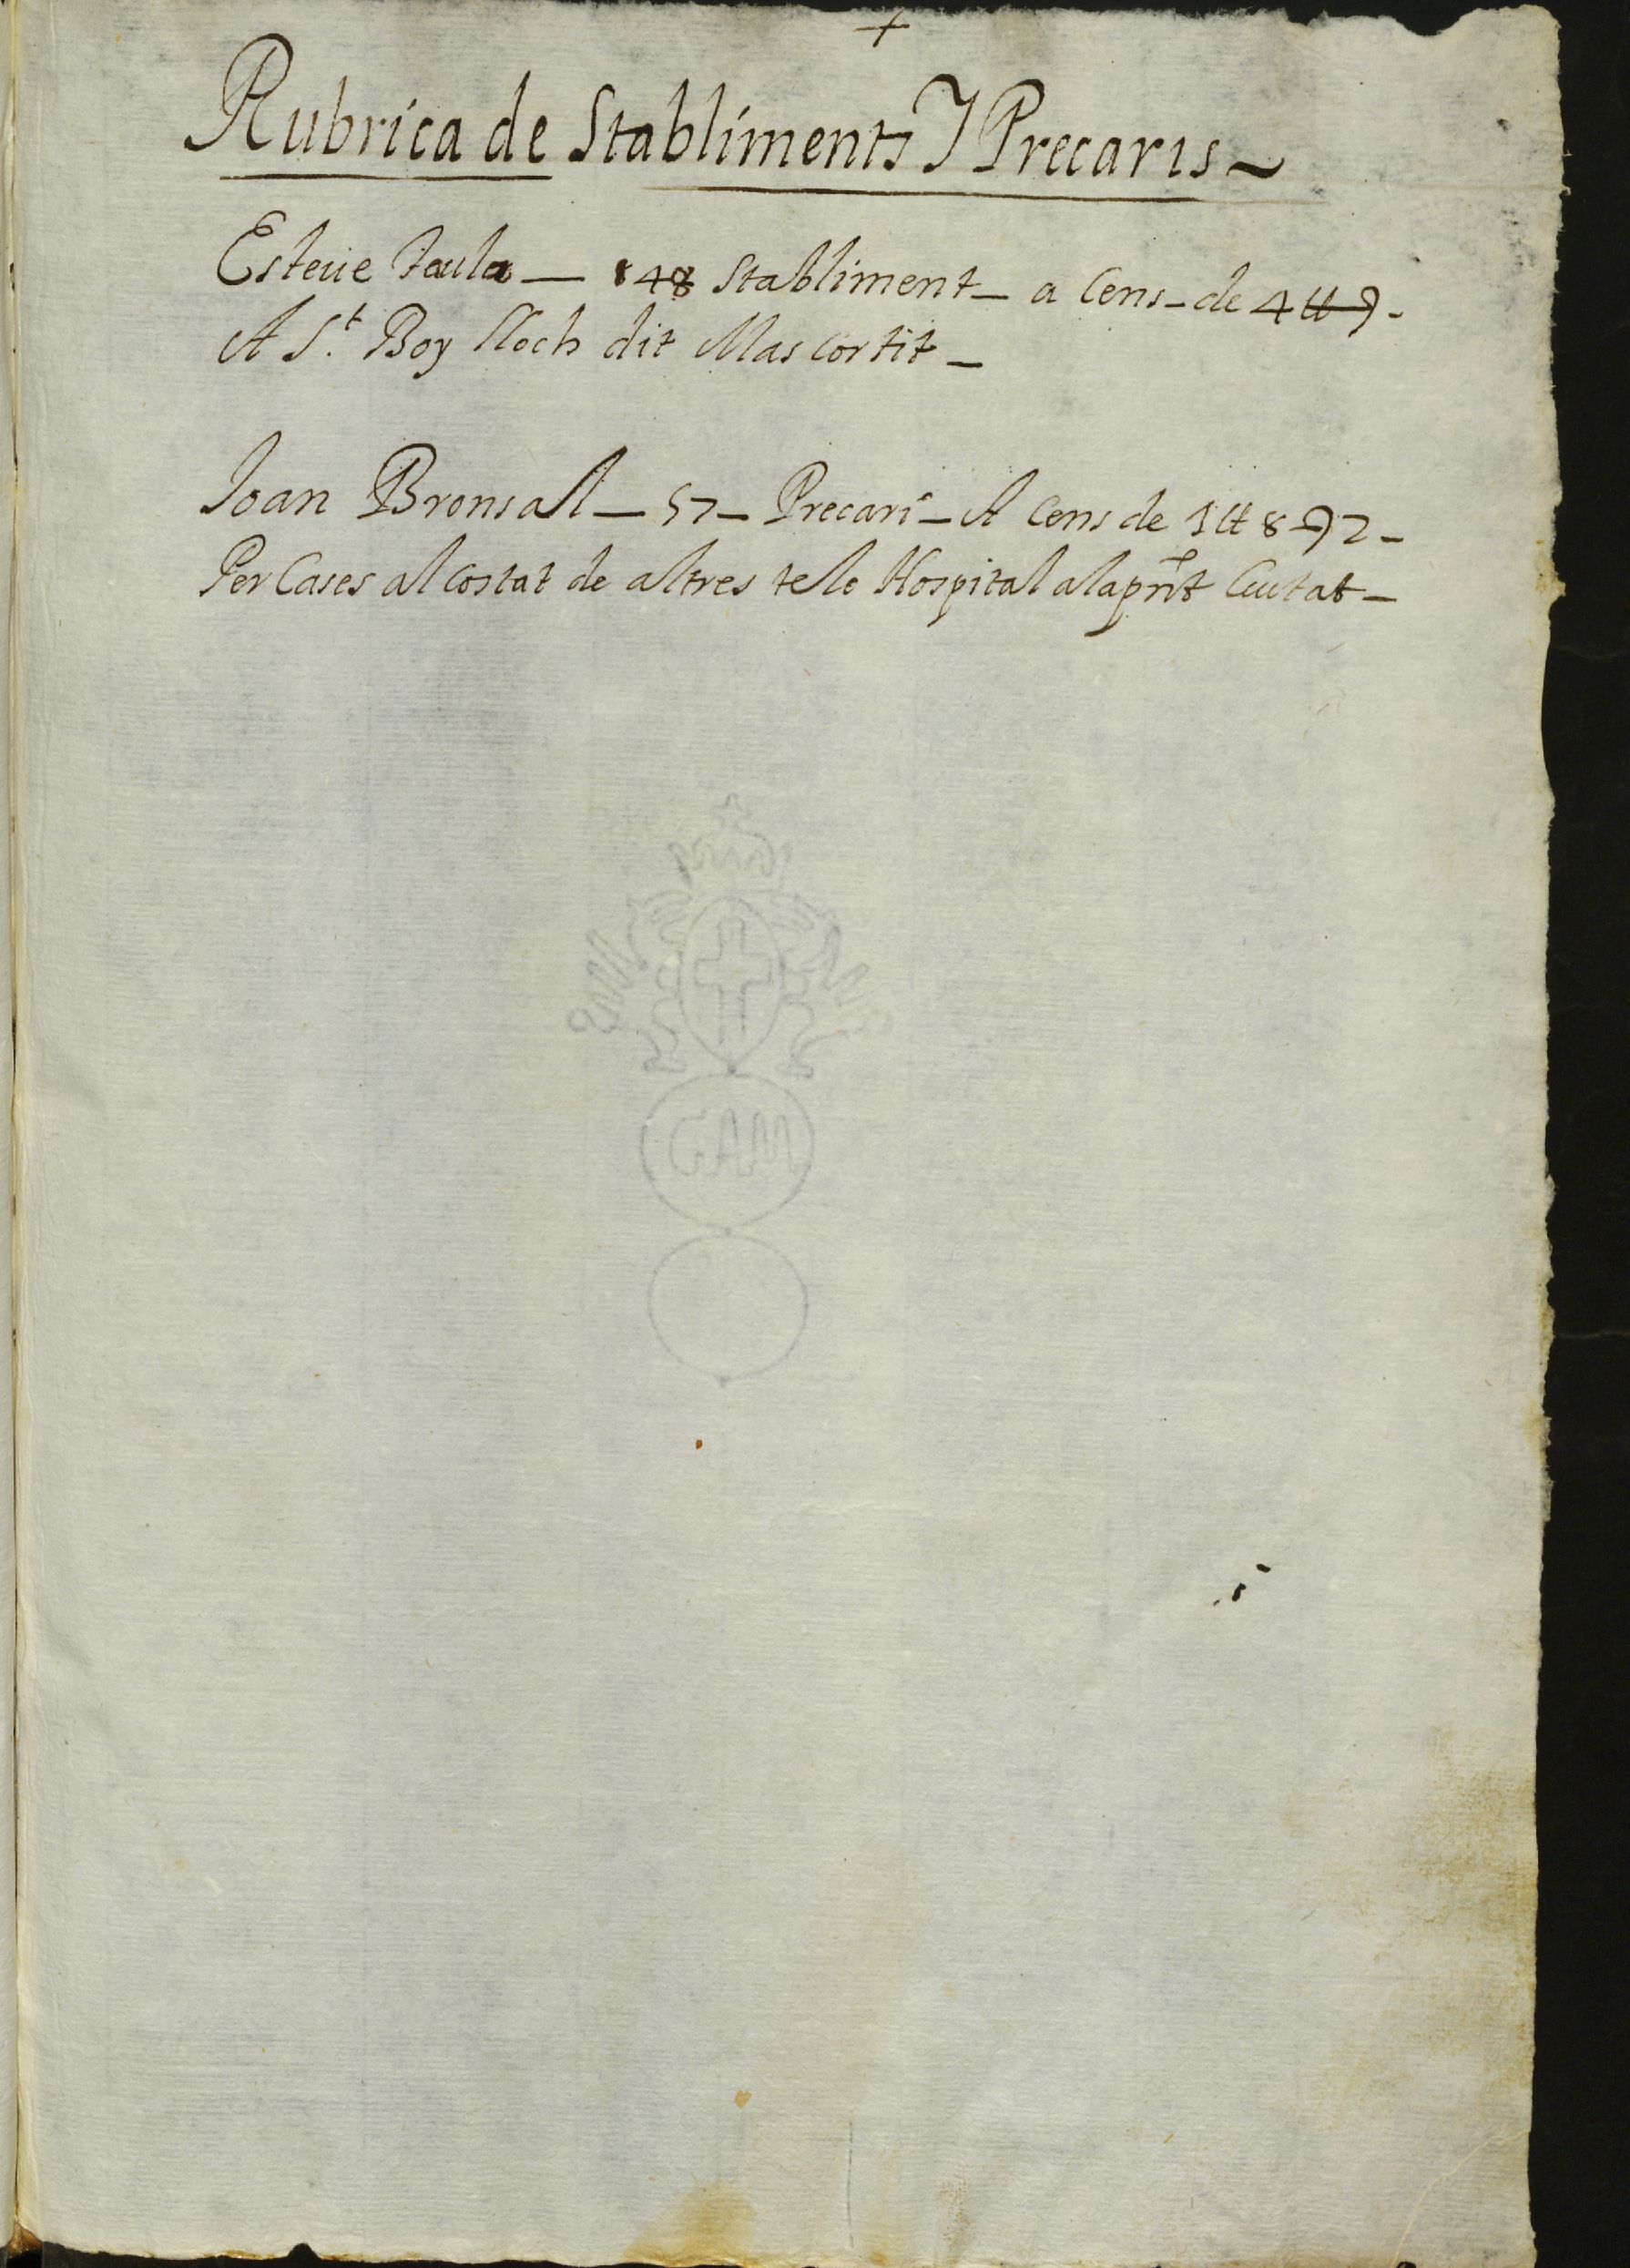 +
Rubrica de Stabliments I Precaris
Esteue Taula — 148 Stabliment — a Cens — de 4 ₶ —
A St. Boy lloch dit Mas cortit —
Joan Bronsall — 57 — Precari — A Cens de 1 ₶ 8 2 —
Per Cases al costat de altres te lo Hospital a la pnt Ciutat —
GAM